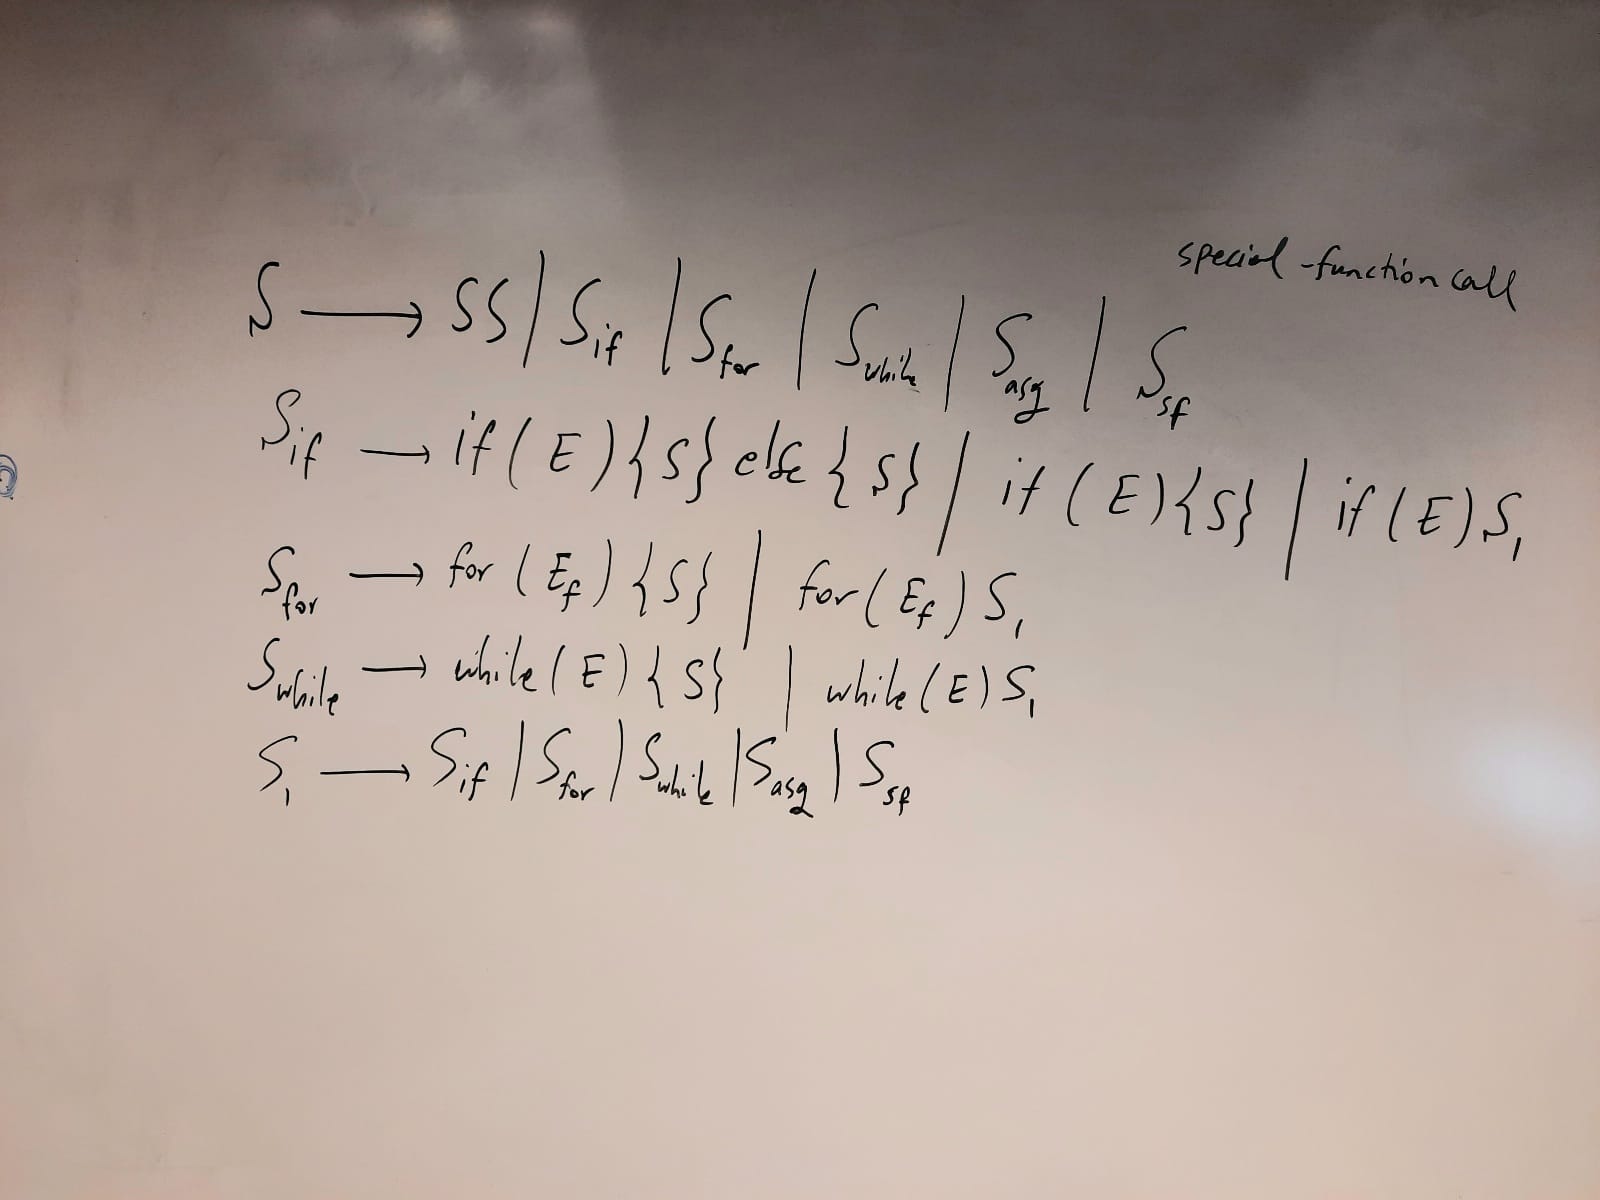 special-function call
S → SS | S_if | S_for | S_while | S_asg | S_sf
S_if → if(E){S} else {S} | if(E){S} | if(E)S_1
S_for → for(E_f){S} | for(E_f)S_1
S_while → while(E){S} | while(E)S_1
S_1 → S_if | S_for | S_while | S_asg | S_sf